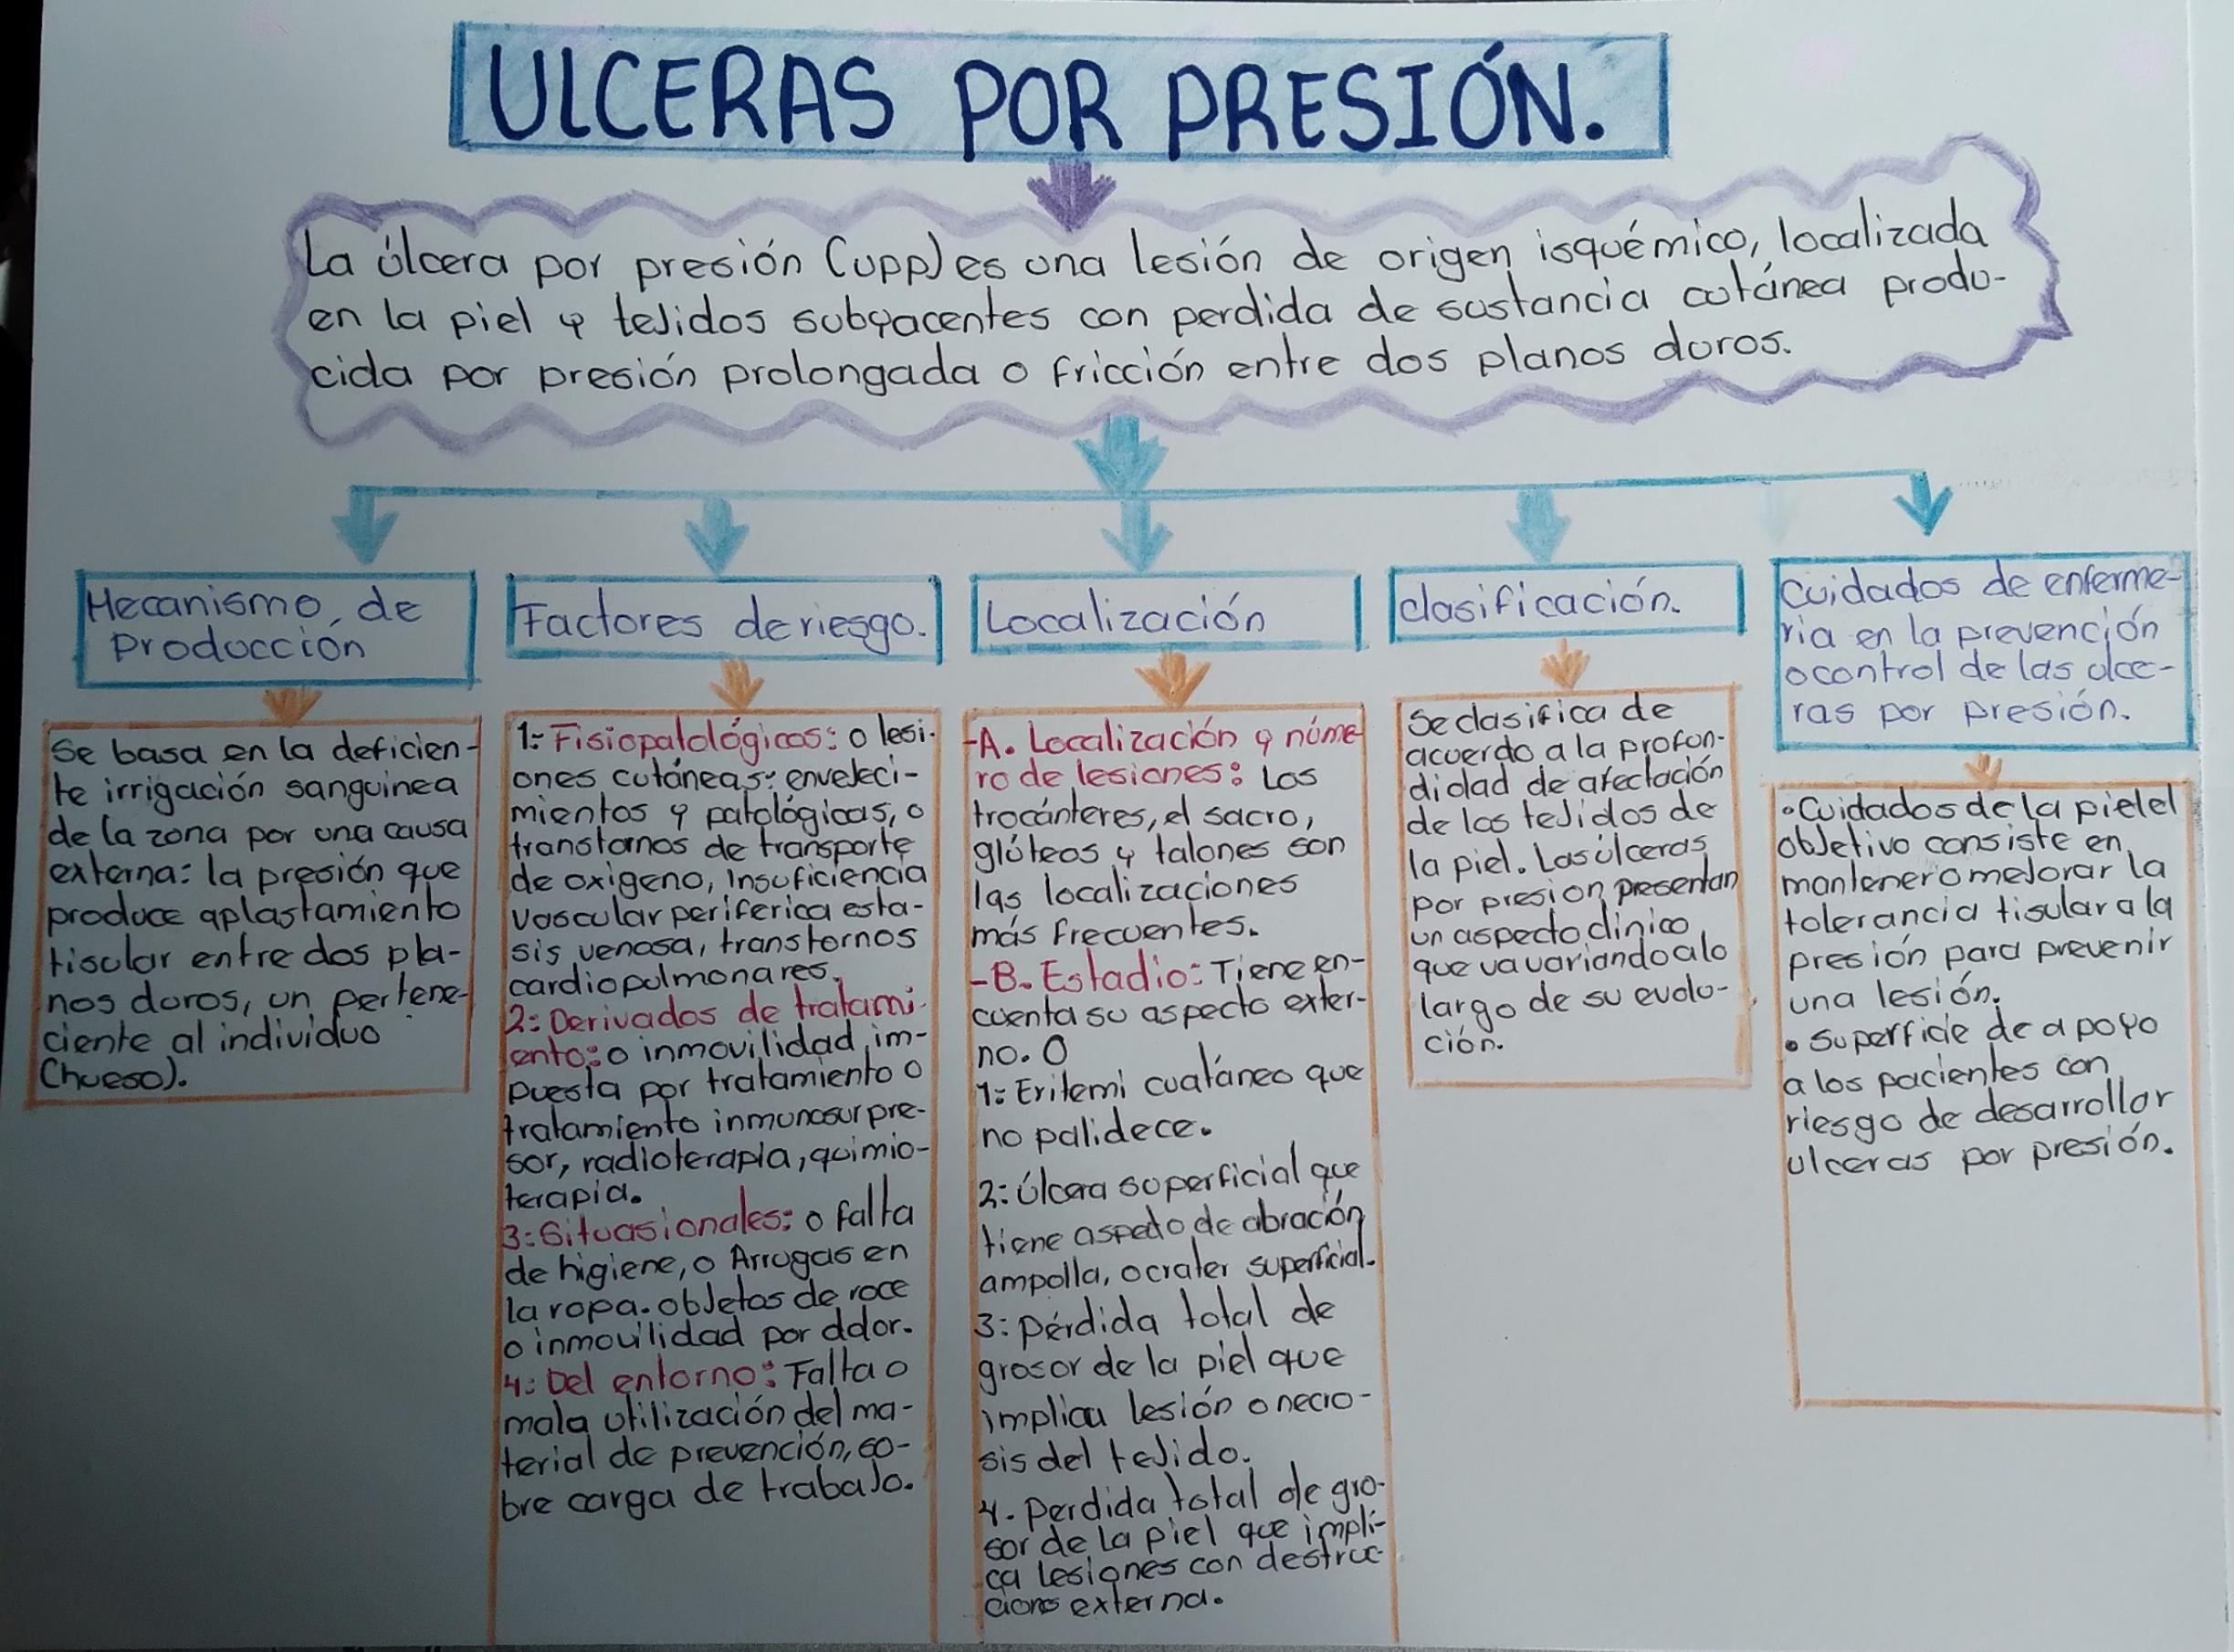 ULCERAS POR PRESIÓN.
La úlcera por presión (upp) es una lesión de origen isquémico, localizada
en la piel y tejidos subyacentes con perdida de sustancia cutánea produ-
cida por presión prolongada o fricción entre dos planos duros.
Mecanismo de
Producción
Se basa en la deficien-
te irrigación sanguinea
de la zona por una causa
externa: la presión que
produce aplastamiento
tisular entre dos pla-
nos duros, un pertene-
ciente al individuo
(hueso).
Factores de riesgo.
1: Fisiopatológicos: o lesi-
ones cutáneas: envejeci-
mientos y patológicas, o
transtornos de transporte
de oxigeno, Insuficiencia
vascular periferica esta-
sis venosa, transtornos
cardiopulmonares.
2: Derivados de tratami-
ento: o inmovilidad im-
puesta por tratamiento o
tratamiento inmunosurpre-
sor, radioterapia, quimio-
terapia.
3: Situasionales: o falta
de higiene, o Arrugas en
la ropa. objetos de roce
o inmovilidad por dolor.
4: Del entorno: Falta o
mala utilización del ma-
terial de prevención, so-
bre carga de trabajo.
Localización
-A. Localización y núme
ro de lesiones: Los
trocánteres, el sacro,
glúteos y talones son
las localizaciones
más frecuentes.
-B. Estadio: Tiene en-
cuenta su aspecto exter-
no. O
1: Eritemi cuatáneo que
no palidece.
2: Úlcera superficial que
tiene aspeto de abración
ampolla, o crater superficial.
3: pérdida total de
grosor de la piel que
implica lesión o necro-
sis del tejido.
4. Perdida total de gro-
sor de la piel que impli-
ca lesiones con destruc-
cions externa.
clasificación.
Se clasifica de
acuerdo a la profun-
didad de afectación
de los tejidos de
la piel. Las úlceras
por presion presentan
un aspecto clinico
que va variando a lo
largo de su evolu-
ción.
Cuidados de enferme-
ria en la prevención
o control de las ulce-
ras por presión.
• Cuidados de la piel el
objetivo consiste en
mantener o mejorar la
tolerancia tisular a la
presión para prevenir
una lesión.
• Superficie de apoyo
a los pacientes con
riesgo de desarrollar
ulceras por presión.